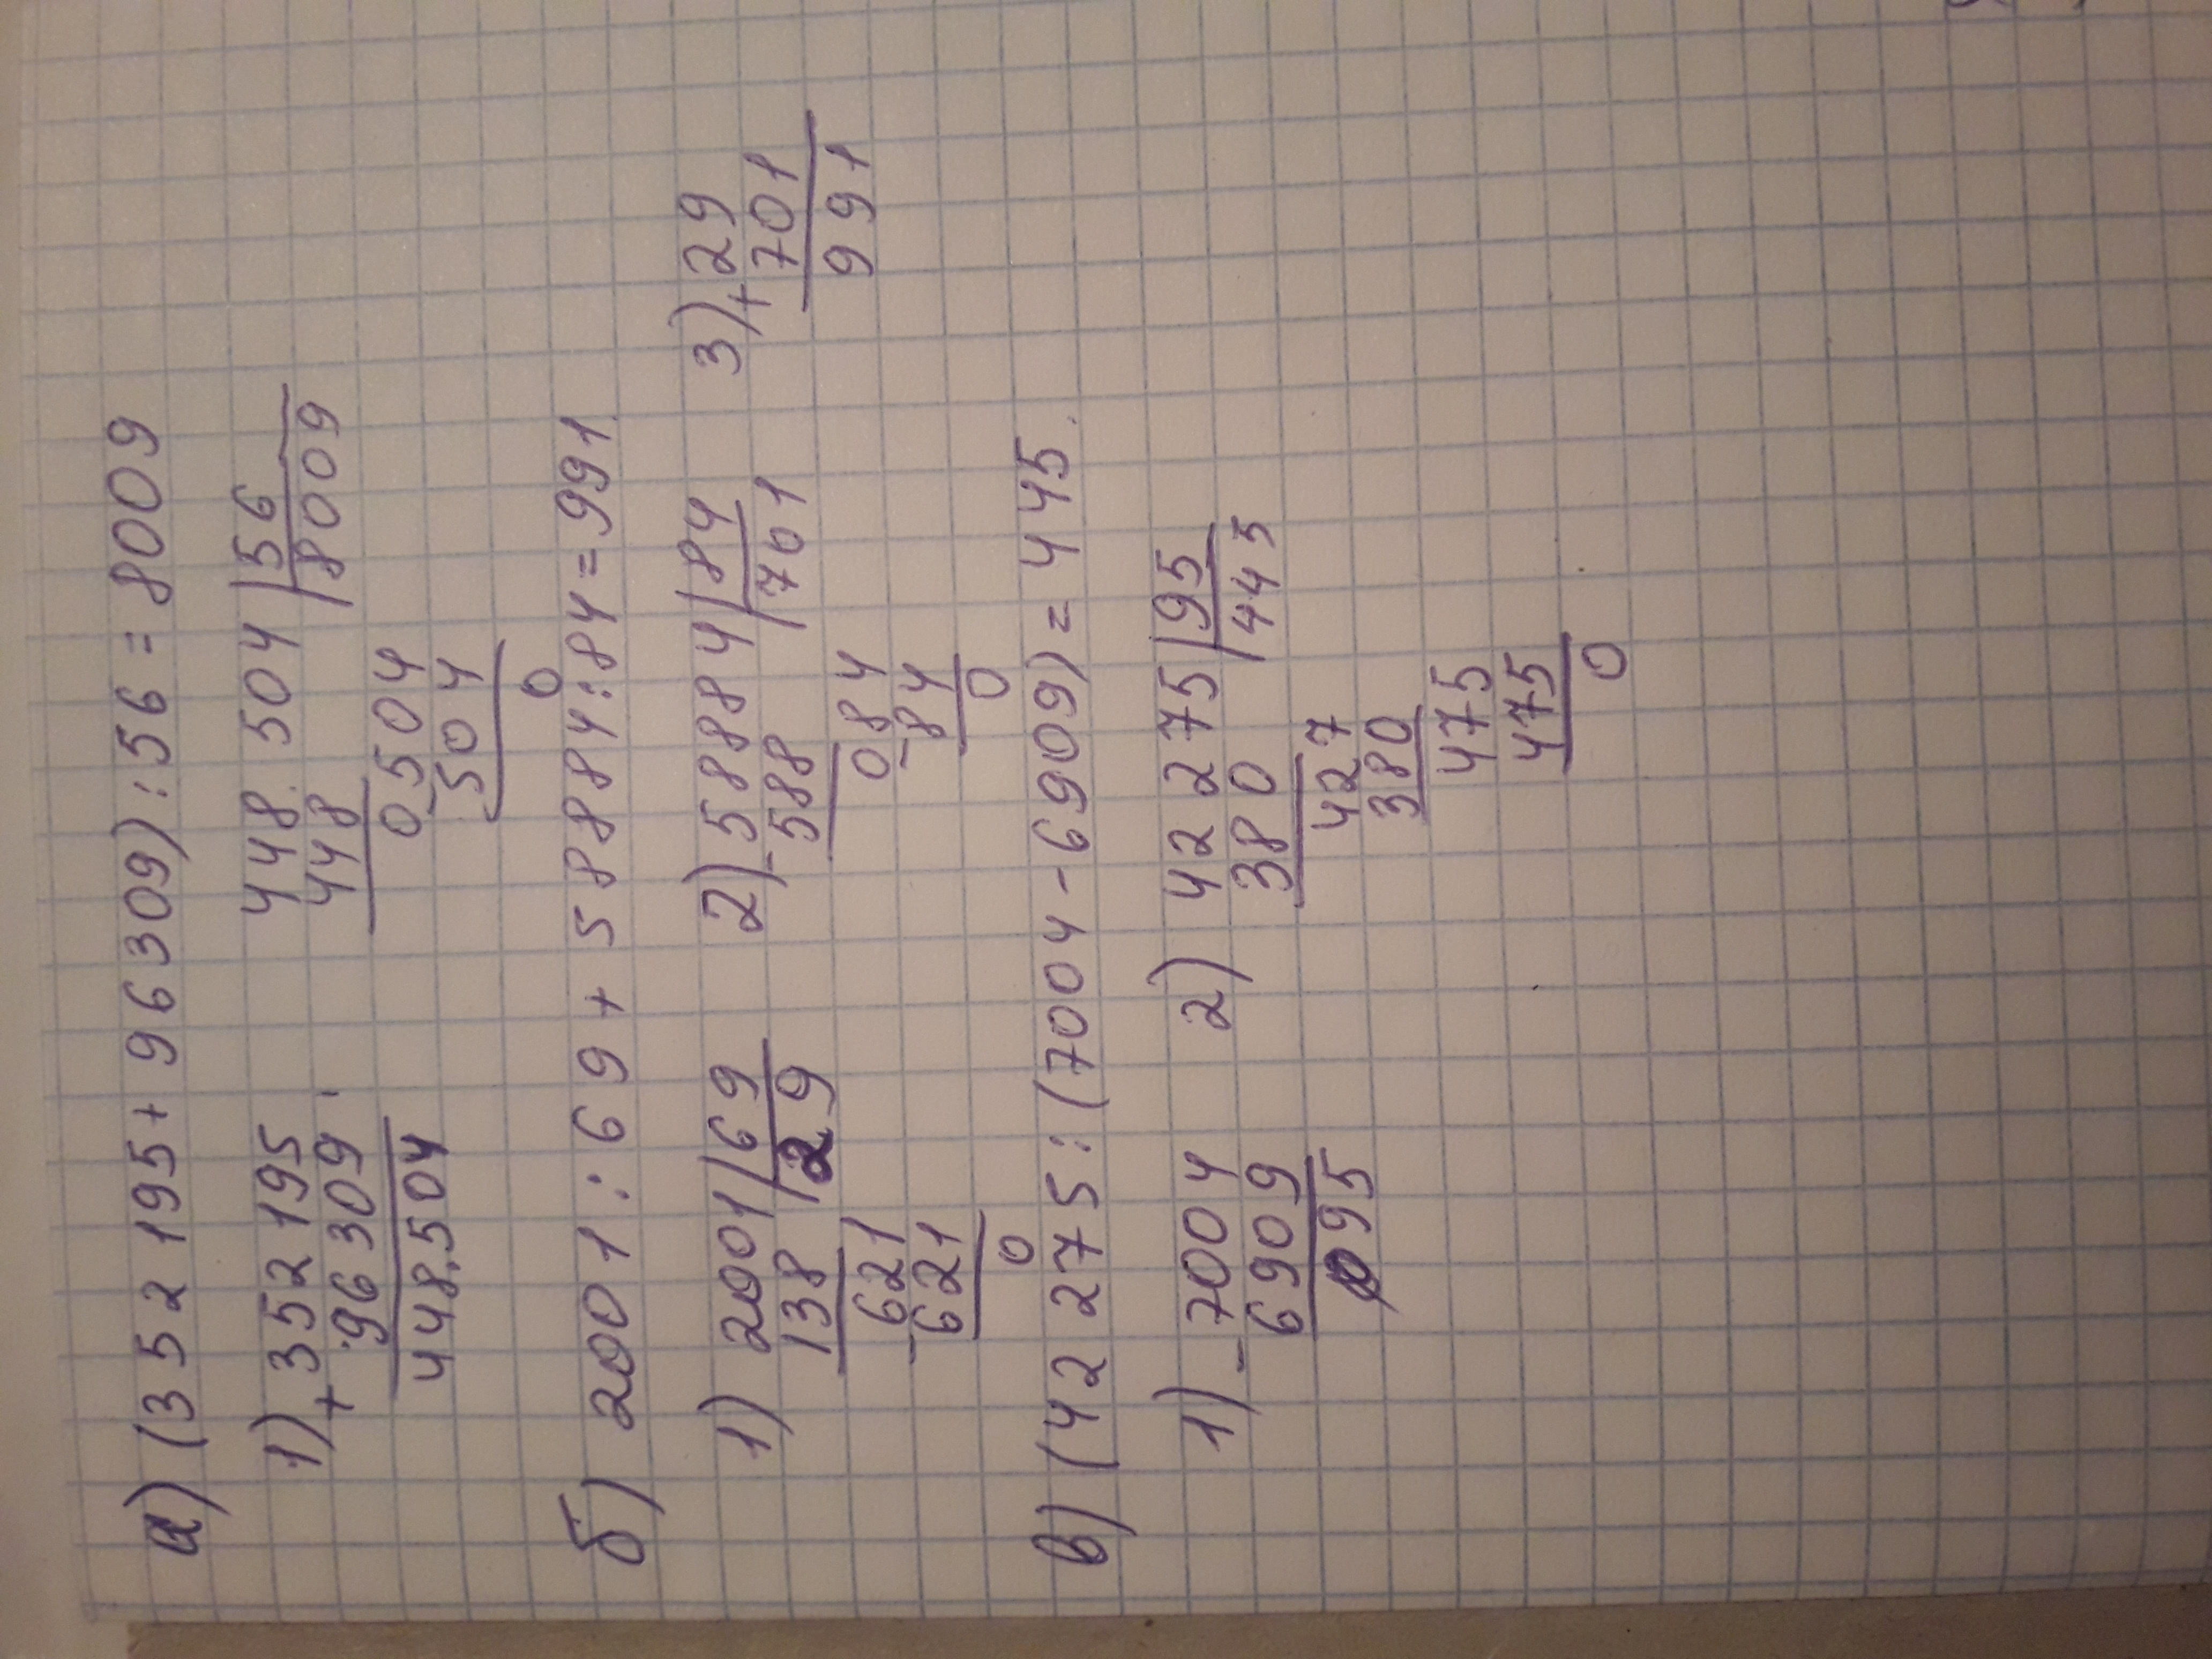 а) (352195+96309):56=8009
1) +352195 448.504|56
96309 448 8009
448.504 0504
-504
0
б) 2001:69+58884:84=991
1) 2001|69 2) -58884|84 3) +29
138 29 588 701 701
-621 084 991
621 -84
0 0
в) (42275:(7004-6909)=445.
1) -7004 2) 42275|95
6909 380 445
095 427
380
475
475
0